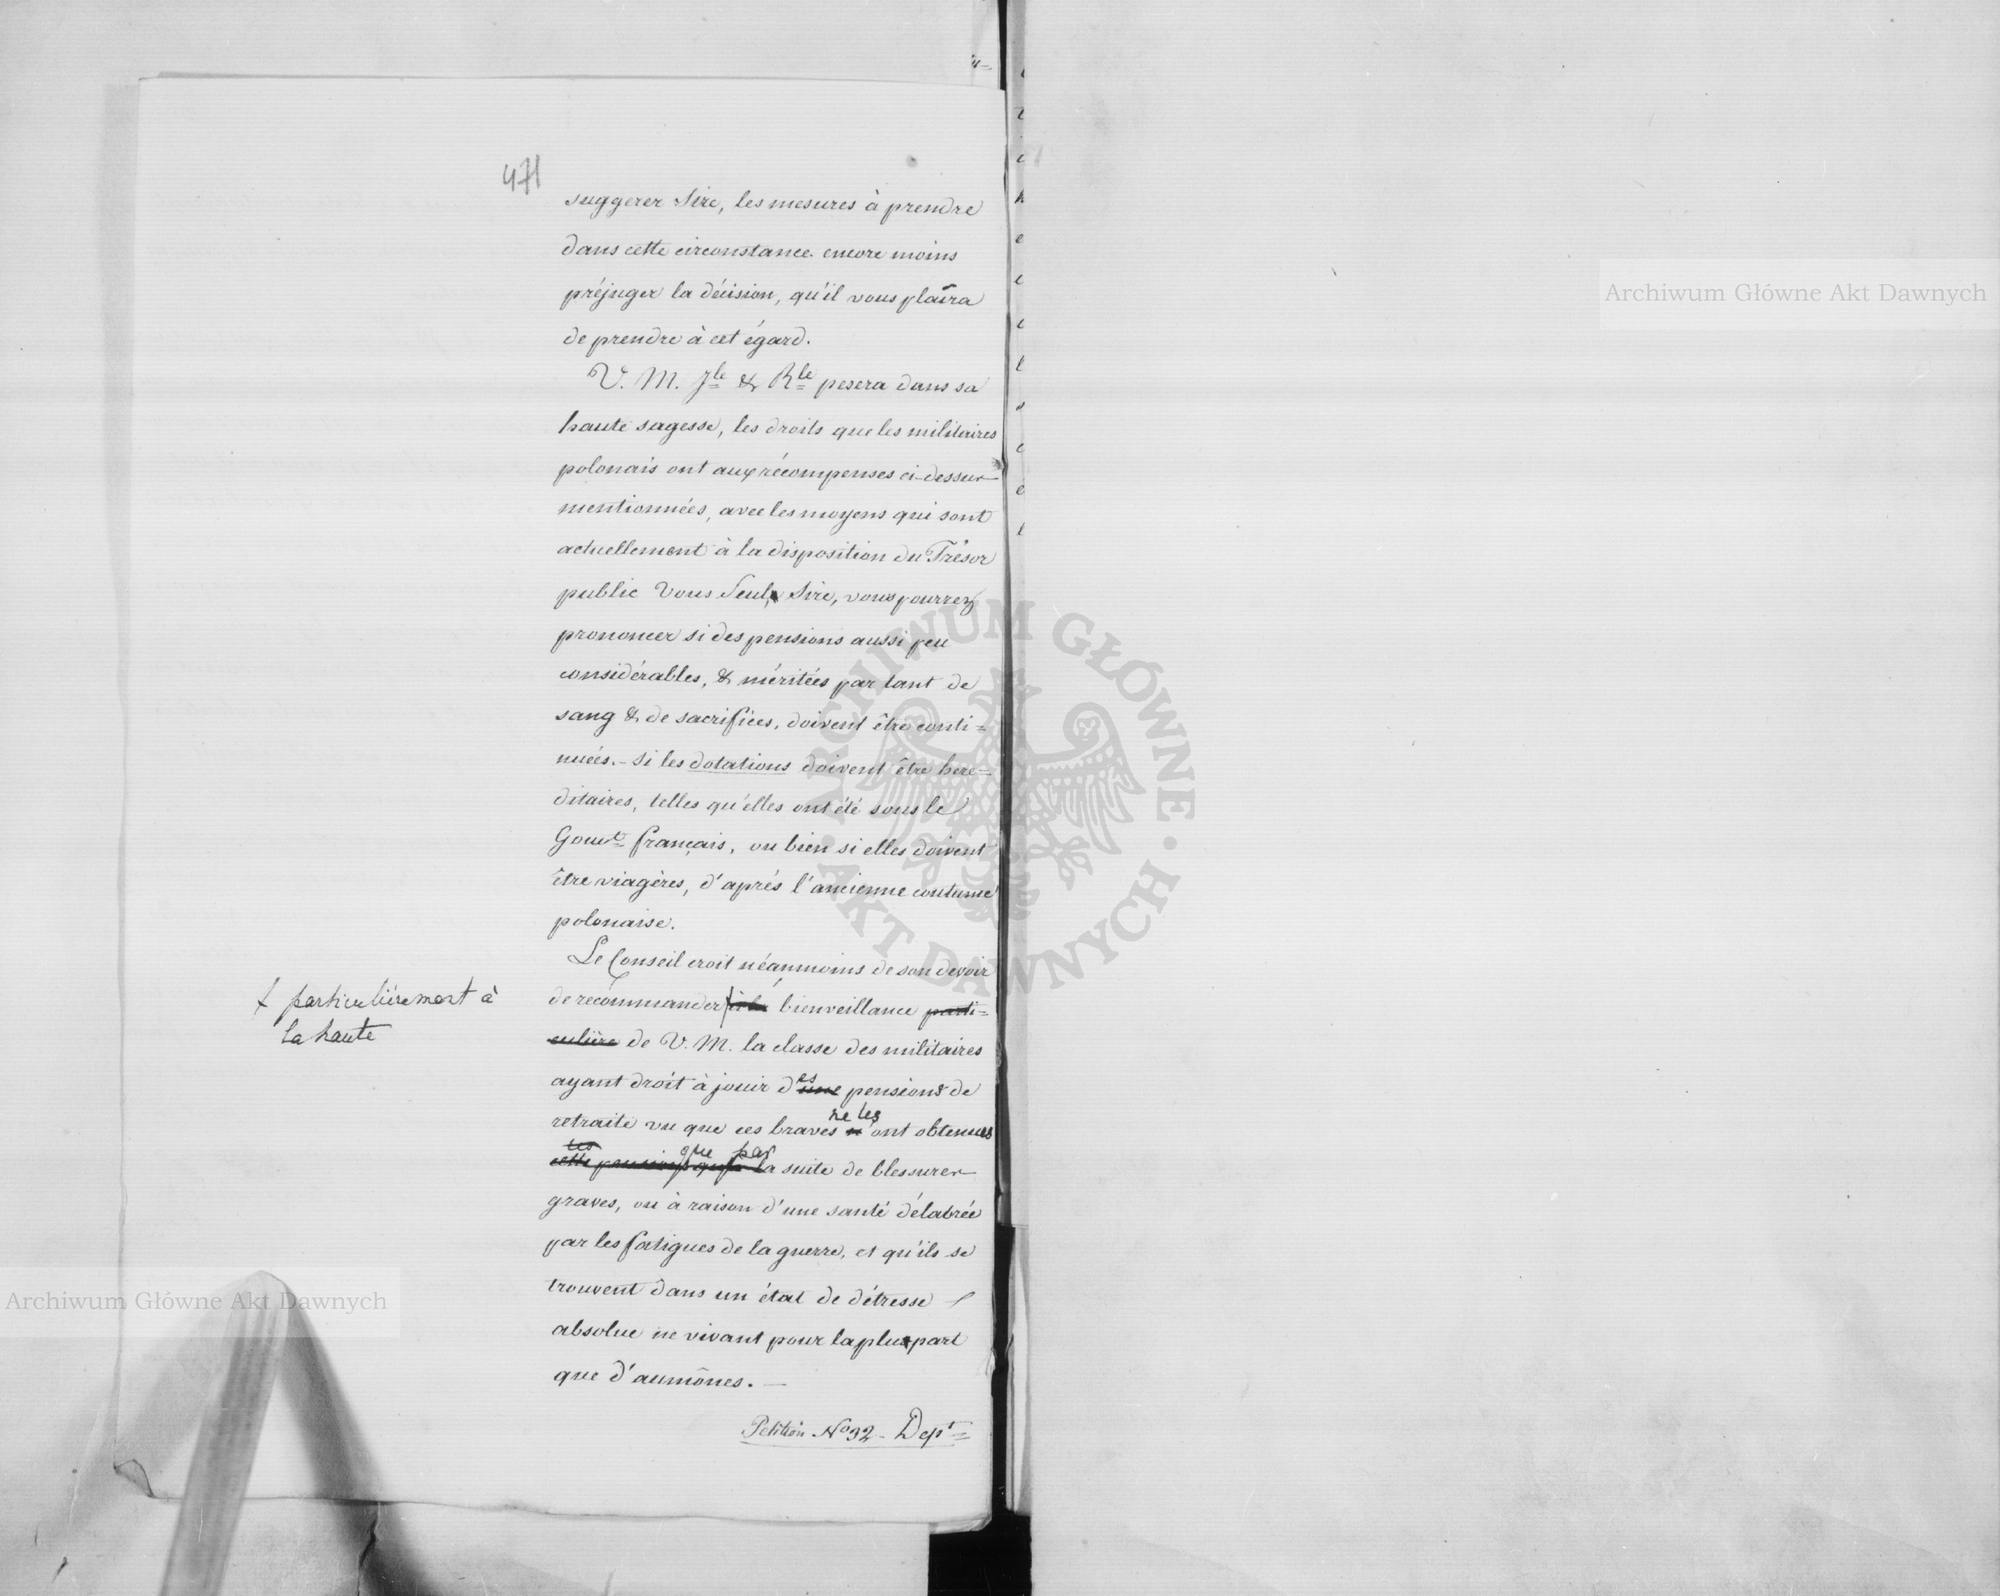 471
suggerer Sire, les mesures à prendre
dans cette circonstance encore moins
préjuger la décision, qu'il vous plaira
de prendre à cet égard.
V. M. Jle & Rle pesera dans sa
haute sagesse, les droits que les militaires
polonais ont aux récompenses ci-dessus
mentionnées, avec les moyens qui sont
actuellement à la disposition du Trésor
public Vous Seul, Sire, vous pourrez
prononcer si des pensions aussi peu
considérables, & méritées par tant de
sang & de sacrifices, doivent être conti=
nuées. - Si les dotations doivent être here=
ditaires, telles qu'elles ont été sous le
Gouvt français, ou bien si elles doivent
être viagères, d'après l'ancienne coutume
polonaise.
Le Conseil croit néanmoins de son devoir
de recommander à la bienveillance parti=
culière de V. M. la classe des militaires
ayant droit à jouir des une pensions de
retraite vu que ces braves ne les n'ont obtenues
cette pension que par la suite de blessures
graves, ou à raison d'une santé délabrée
par les fatigues de la guerre, et qu'ils se
trouvent dans un état de détresse
absolue ne vivant pour la plus part
que d'aumônes. —
Petition No 92 - Dept
+ particulièrement à
la haute
Archiwum Główne Akt Dawnych
Archiwum Główne Akt Dawnych
ARCHIWUM GŁÓWNE AKT DAWNYCH